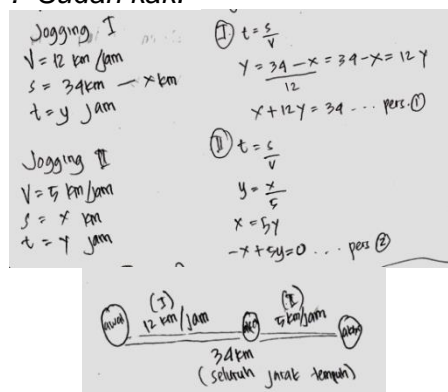 Jogging I
V = 12 km/jam
s = 34km - x km
t = y jam
Jogging II
V = 5 km/jam
s = x km
t = y jam
(I) t = s/v
y = (34 - x)/12 = 34 - x = 12 y
x + 12y = 34 ... pers. (1)
(II) t = s/v
y = x/5
x = 5y
-x + 5y = 0 ... pers (2)
(I)
12 km/jam
(II)
5 km/jam
awal
akhir
34km
(seluruh jarak tempuh)